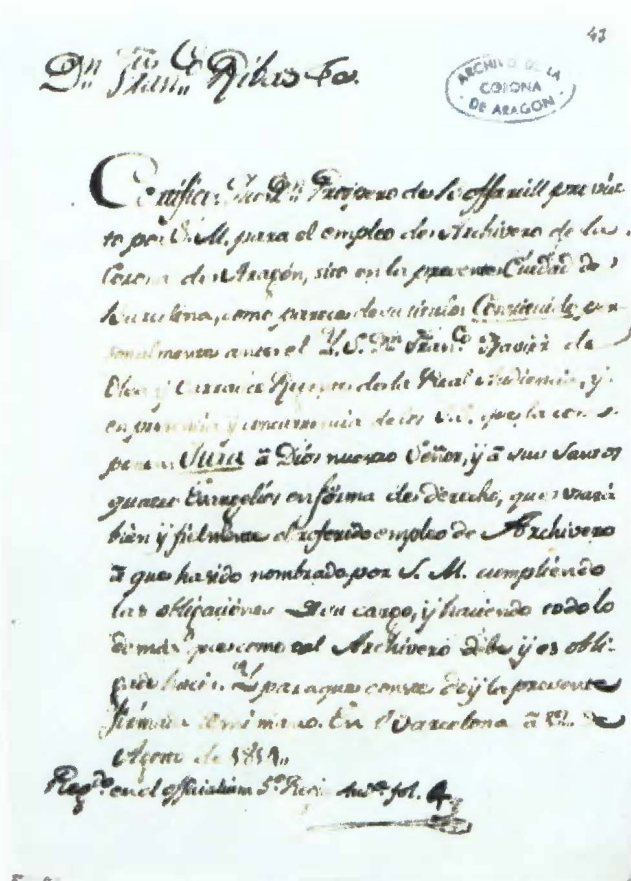 43
ARCHIVO DE LA
CORONA
DE ARAGON
Dn. Franco. Ribas
Certifico: Que Dn. Prospero de Boffarull provis-
to por S. M. para el empleo de Archivero de la
Corona de Aragón, sito en la presente Ciudad de
Barcelona, como parece de su titulo Constituido per-
sonalmente ante el Y. S. Dn. Franco. Javier de
Olea y Carrasco Regente de la Real Audiencia, y
en presencia y concurrencia de los que la
Jura â Dios nuestro Señor, ÿ â sus Santos
quatro Evangelios en forma de derecho, que usará
bien ÿ fielmente el referido empleo de Archivero
â que ha sido nombrado por S. M. cumpliendo
las obligaciones de su cargo, ÿ haciendo todo lo
demás que como tal Archivero debe ÿ es obli-
gado hacer. para que conste doy la presente
firmada de mi mano. En Barcelona â de
Agosto de 1814.
Regdo. en el officialium 5º. fol. 4